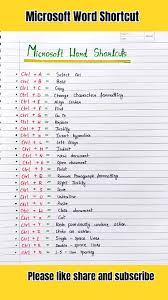 Microsoft Word Shortcut
Microsoft Word Shortcuts
Ctrl + A = Select All
Ctrl + B = Bold
Ctrl + C = Copy
Ctrl + D = Change characters formatting
Ctrl + E = Align Center
Ctrl + F = Find
Ctrl + G = Go to
Ctrl + H = Replace
Ctrl + I = Italic
Ctrl + J = Justify
Ctrl + K = Insert hyperlink
Ctrl + L = Left Align
Ctrl + M = Indent
Ctrl + N = New document
Ctrl + O = Open document
Ctrl + P = Print
Ctrl + Q = Remove Paragraph formatting
Ctrl + R = Right Justify
Ctrl + S = Save
Ctrl + U = Underline
Ctrl + V = Paste
Ctrl + W = Close document
Ctrl + X = Cut
Ctrl + Y = Redo previously undone action
Ctrl + Z = Undo an action
Ctrl + 1 = Single-space lines
Ctrl + 2 = Double-space lines
Ctrl + 5 = 1.5-line spacing
Please like share and subscribe